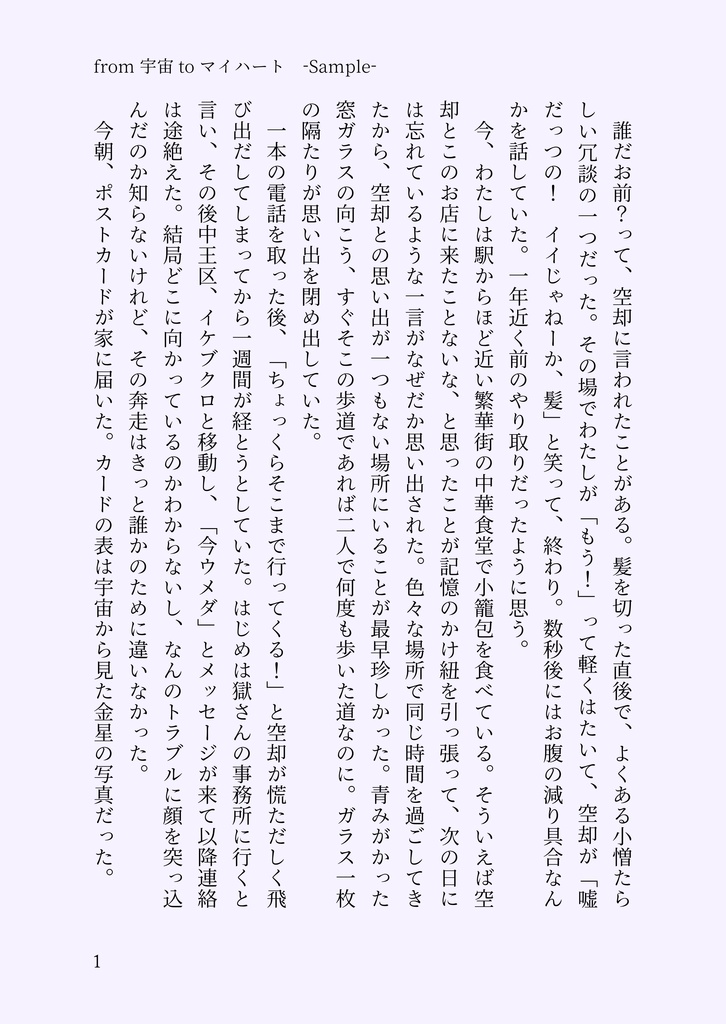 from 宇宙 to マイハート　-Sample-
　誰だお前？って、空却に言われたことがある。髪を切った直後で、よくある小憎たら
しい冗談の一つだった。その場でわたしが「もう！」って軽くはたいて、空却が「嘘
だっつの！　イイじゃねーか、髪」と笑って、終わり。数秒後にはお腹の減り具合なん
かを話していた。一年近く前のやり取りだったように思う。
　今、わたしは駅からほど近い繁華街の中華食堂で小籠包を食べている。そういえば空
却とこのお店に来たことないな、と思ったことが記憶のかけ紐を引っ張って、次の日に
は忘れているような一言がなぜだか思い出された。色々な場所で同じ時間を過ごしてき
たから、空却との思い出が一つもない場所にいることが最早珍しかった。青みがかった
窓ガラスの向こう、すぐそこの歩道であれば二人で何度も歩いた道なのに。ガラス一枚
の隔たりが思い出を閉め出していた。
　一本の電話を取った後、「ちょっくらそこまで行ってくる！」と空却が慌ただしく飛
び出だしてしまってから一週間が経とうとしていた。はじめは獄さんの事務所に行くと
言い、その後中王区、イケブクロと移動し、「今ウメダ」とメッセージが来て以降連絡
は途絶えた。結局どこに向かっているのかわからないし、なんのトラブルに顔を突っ込
んだのか知らないけれど、その奔走はきっと誰かのために違いなかった。
　今朝、ポストカードが家に届いた。カードの表は宇宙から見た金星の写真だった。
1